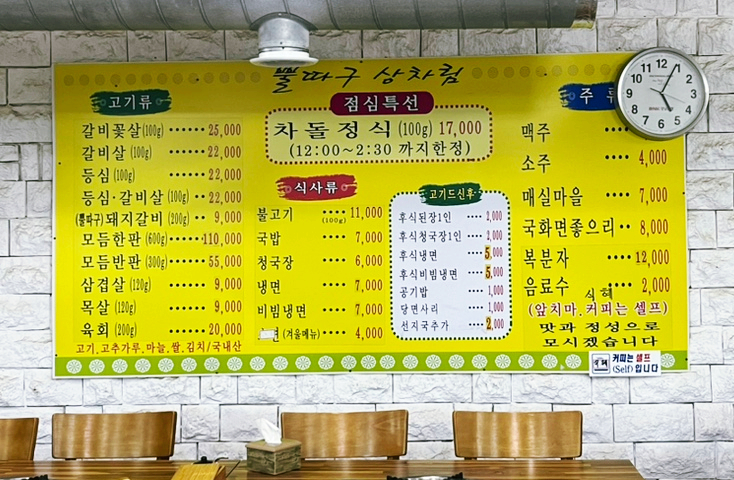 뿔따구 상차림
고기류
갈비꽃살 (100g) ······ 25,000
갈비살 (100g) ······ 22,000
등심 (100g) ······ 22,000
등심·갈비살 (100g) ·· 22,000
(뿔따구)돼지갈비 (200g) ·· 9,000
모듬한판 (600g) ······ 110,000
모듬반판 (300g) ······ 55,000
삼겹살 (120g) ······ 9,000
목살 (120g) ······ 9,000
육회 (200g) ······ 20,000
고기.고추가루.마늘.쌀.김치/국내산
점심특선
차돌정식 (100g) 17,000
(12:00~2:30 까지한정)
식사류
불고기 (100g) ···· 11,000
국밥 ···· 7,000
청국장 ···· 6,000
냉면 ···· 7,000
비빔냉면 ···· 7,000
(겨울메뉴) ···· 4,000
고기드신후
후식된장1인 ··· 2,000
후식청국장1인 ··· 2,000
후식냉면 ··· 5,000
후식비빔냉면 ··· 5,000
공기밥 ··· 1,000
당면사리 ··· 1,000
선지국추가 ··· 2,000
주류
맥주
소주 ···· 4,000
매실마을 ···· 7,000
국화면좋으리 ·· 8,000
복분자 ···· 12,000
음료수 ···· 2,000
식혜
(앞치마.커피는 셀프)
맛과 정성으로
모시겠습니다
커피는 셀프
(Self) 입니다
12
1
2
3
4
5
6
7
8
9
10
11